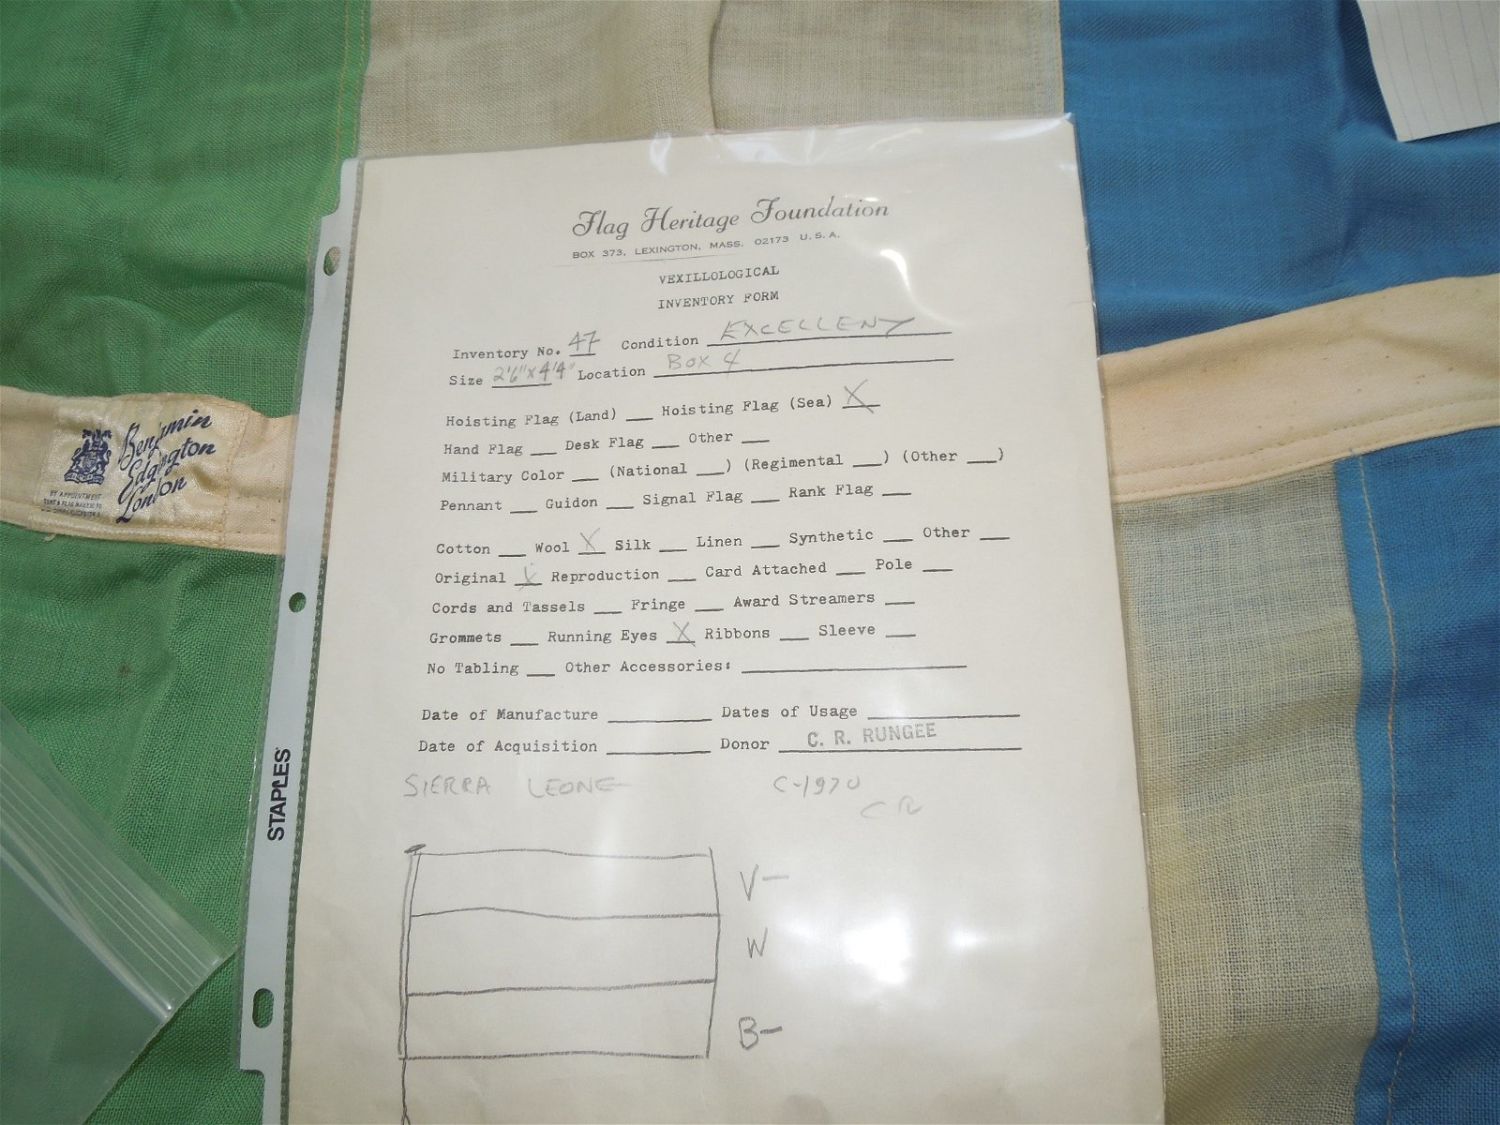 Flag Heritage Foundation
BOX 373, LEXINGTON, MASS. 02173 U.S.A.
VEXILLOLOGICAL
INVENTORY FORM
Inventory No. 47 Condition EXCELLENT
Size 2'6"x4'4" Location Box 4
Hoisting Flag (Land) ___ Hoisting Flag (Sea) X
Hand Flag ___ Desk Flag ___ Other ___
Military Color ___ (National ___) (Regimental ___) (Other ___)
Pennant ___ Guidon ___ Signal Flag ___ Rank Flag ___
Cotton ___ Wool X Silk ___ Linen ___ Synthetic ___ Other ___
Original X Reproduction ___ Card Attached ___ Pole ___
Cords and Tassels ___ Fringe ___ Award Streamers ___
Grommets ___ Running Eyes X Ribbons ___ Sleeve ___
No Tabling ___ Other Accessories: ___
Date of Manufacture ___ Dates of Usage ___
Date of Acquisition ___ Donor C. R. RUNGEE
SIERRA LEONE C-1970
CR
V-
W
B-
STAPLES
Benjamin
Edgington
London
BY APPOINTMENT